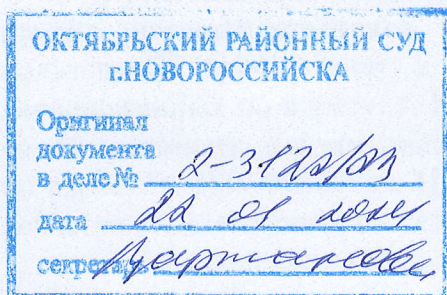 ОКТЯБРЬСКИЙ РАЙОННЫЙ СУД
г.НОВОРОССИЙСКА
Оригинал
документа
в деле № 2-3122/23
дата 22 01 2024
секретарь